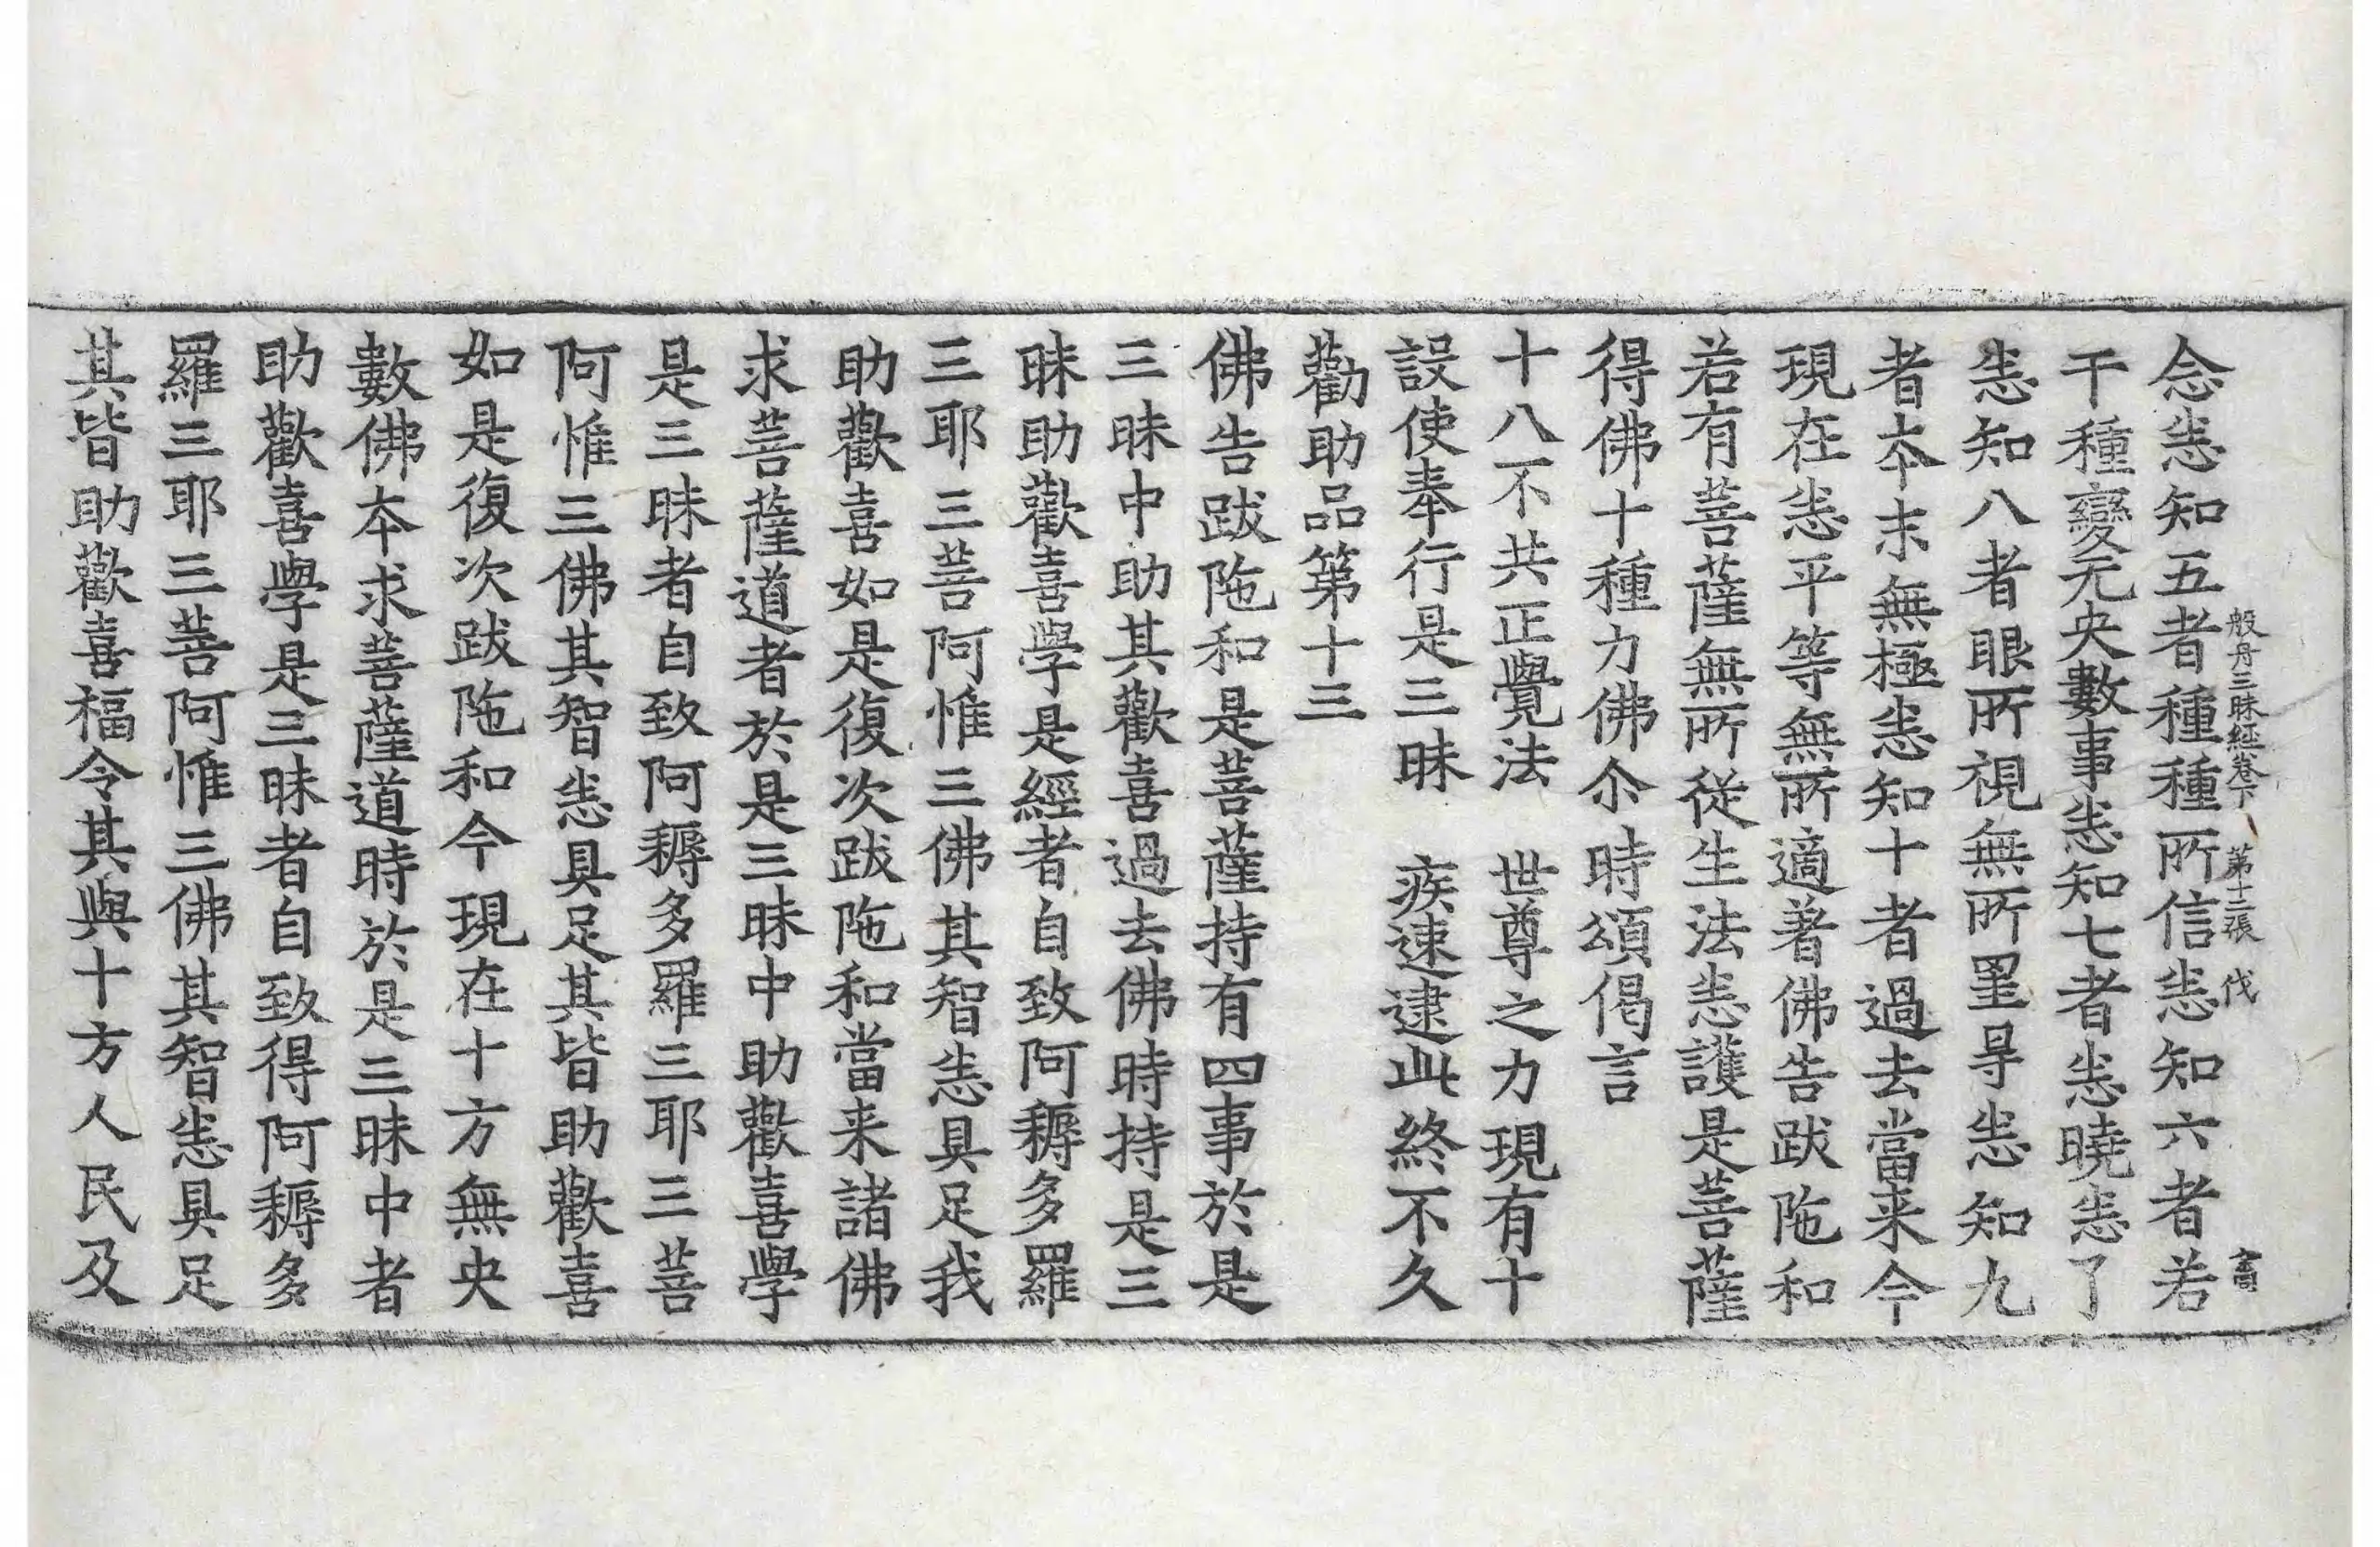 般舟三昧經卷下 第十二張 伐
念悉知五者種種所信悉知六者若
干種變无央數事悉知七者悉曉悉了
悉知八者眼所視無所罣㝵悉知九
者本末無極悉知十者過去當来今
現在悉平等無所適著佛告跋陁和
若有菩薩無所從生法悉護是菩薩
得佛十種力佛尒時頌偈言
十八不共正覺法 世尊之力現有十
設使奉行是三昧 疾速逮此終不久
勸助品第十三
佛告跋陁和是菩薩持有四事於是
三昧中助其歡喜過去佛時持是三
昧助歡喜學是經者自致阿耨多羅
三耶三菩阿惟三佛其智悉具足我
助歡喜如是復次跋陁和當来諸佛
求菩薩道者於是三昧中助歡喜學
是三昧者自致阿耨多羅三耶三菩
阿惟三佛其智悉具足其皆助歡喜
如是復次跋陁和今現在十方無央
數佛本求菩薩道時於是三昧中者
助歡喜學是三昧者自致得阿耨多
羅三耶三菩阿惟三佛其智悉具足
其皆助歡喜福令其與十方人民及